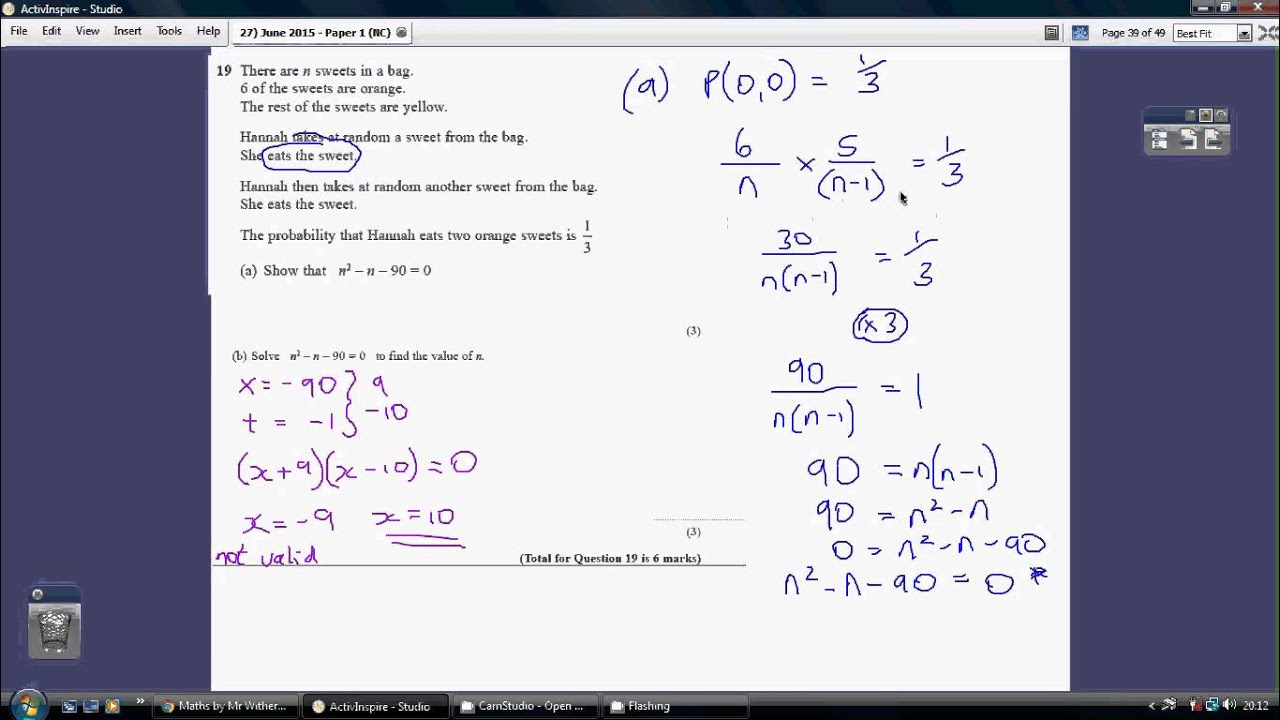 ActivInspire - Studio
File Edit View Insert Tools Help
27) June 2015 - Paper 1 (NC)
Page 39 of 49
Best Fit
19 There are n sweets in a bag.
6 of the sweets are orange.
The rest of the sweets are yellow.
Hannah takes at random a sweet from the bag.
She eats the sweet.
Hannah then takes at random another sweet from the bag.
She eats the sweet.
The probability that Hannah eats two orange sweets is 1/3
(a) Show that n² – n – 90 = 0
(3)
(b) Solve n² – n – 90 = 0 to find the value of n.
x = -90 } 9
t = -1 } -10
(x+9)(x-10) = 0
x = -9 x = 10
not valid
(3)
(Total for Question 19 is 6 marks)
(a) P(O,O) = 1/3
6/n × 5/(n-1) = 1/3
30/n(n-1) = 1/3
(x 3)
90/n(n-1) = 1
90 = n(n-1)
90 = n² - n
0 = n² - n - 90
n² - n - 90 = 0 *
Maths by Mr Wither...
ActivInspire - Studio
CamStudio - Open ...
Flashing
20:12